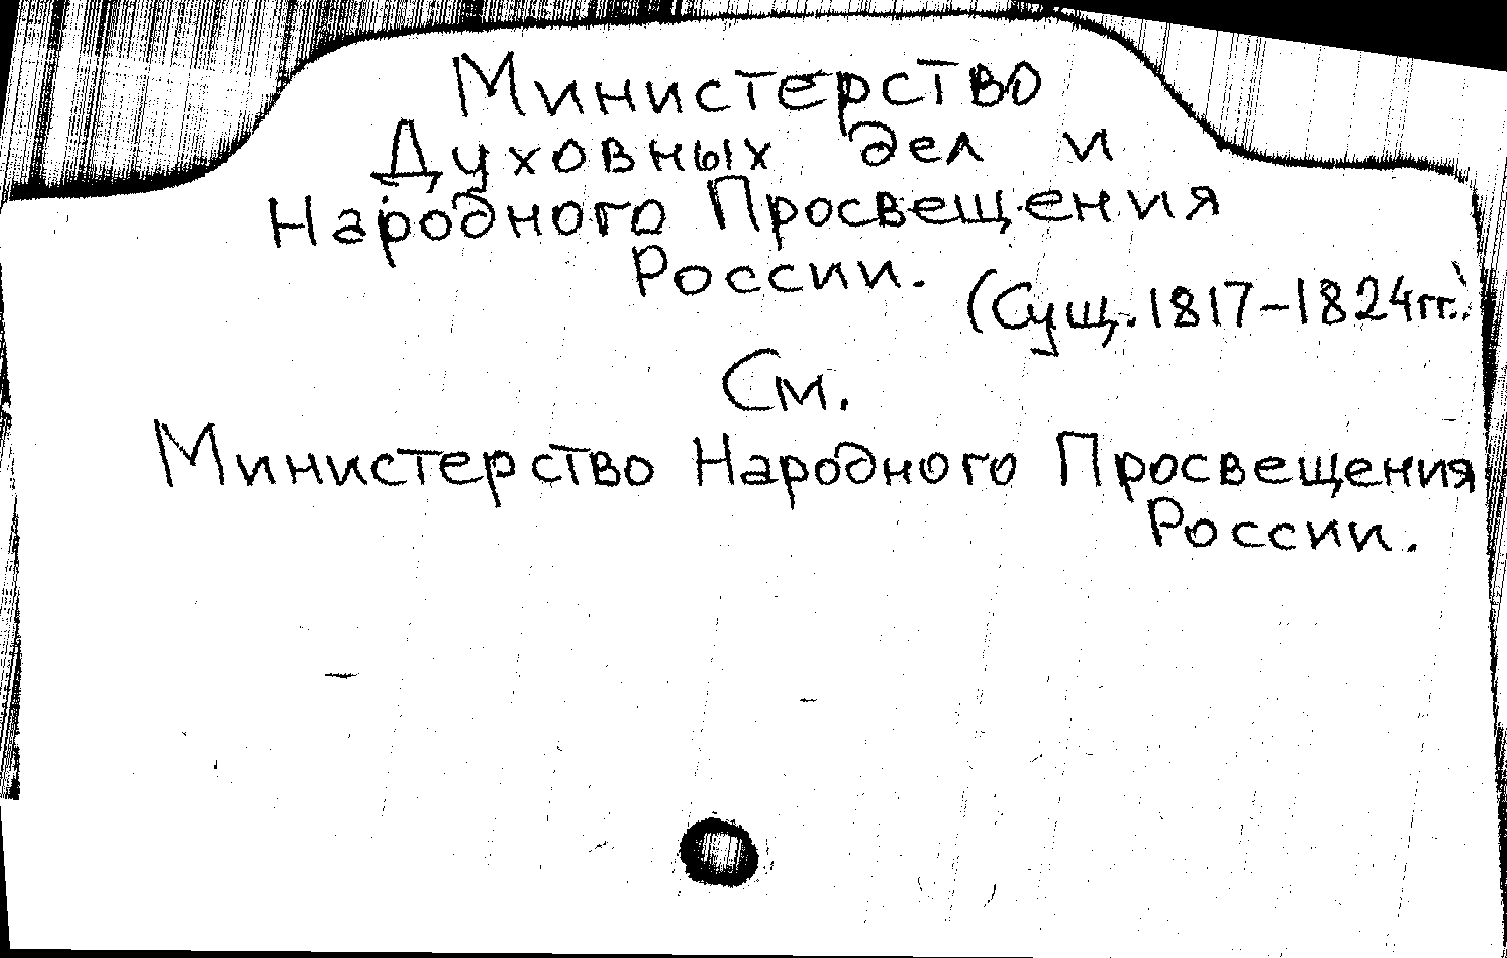 Министерство
Духовных дел и
Народного Просвещения
России.
(Сущ. 1817-1824гг.)
См.
Министерство Народного Просвещения
России.